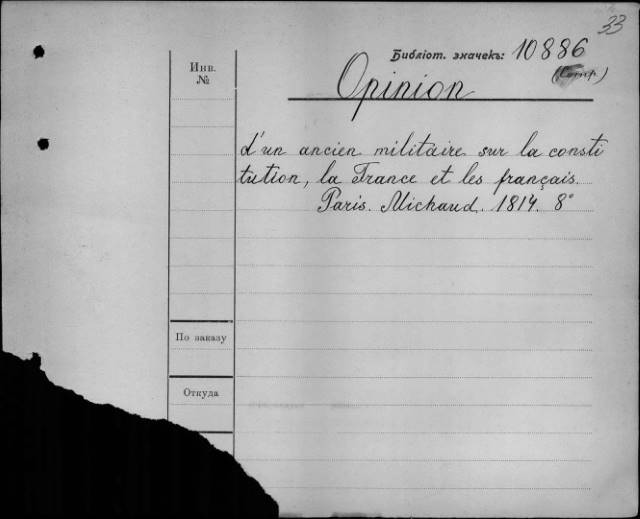 33
Библіот. значекъ: 10886
(Comp.)
Инв.
№
Opinion
d'un ancien militaire sur la consti
tution, la France et les français.
Paris. Michaud. 1814. 8°
По заказу
Откуда